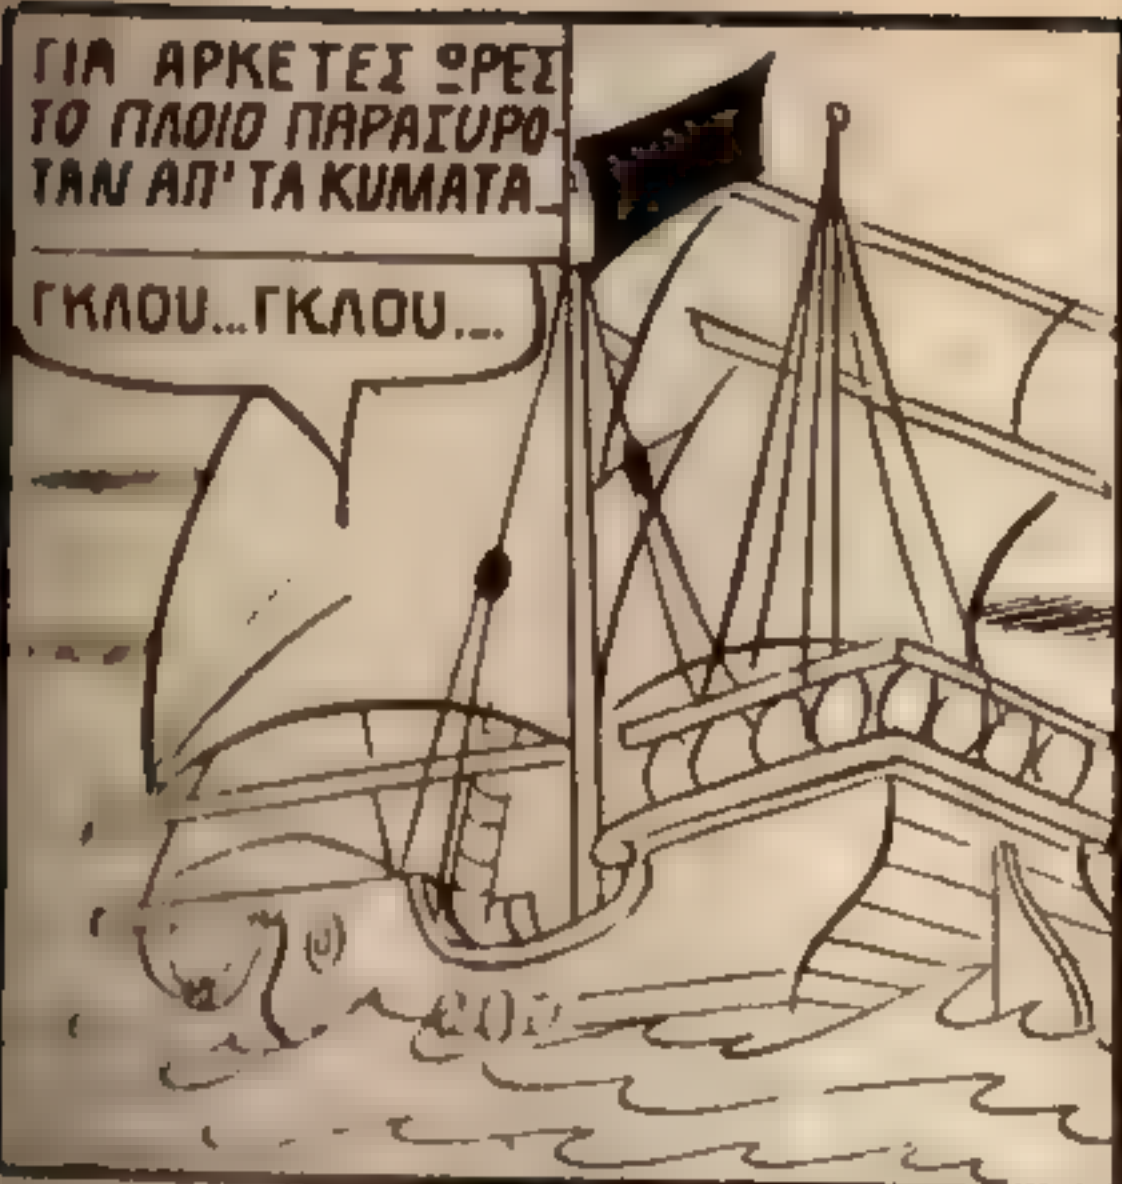 ΓΙΑ ΑΡΚΕΤΕΣ ΩΡΕΣ
ΤΟ ΠΛΟΙΟ ΠΑΡΑΣΥΡΟ-
ΤΑΝ ΑΠ' ΤΑ ΚΥΜΑΤΑ...
ΓΚΛΟΥ...ΓΚΛΟΥ...